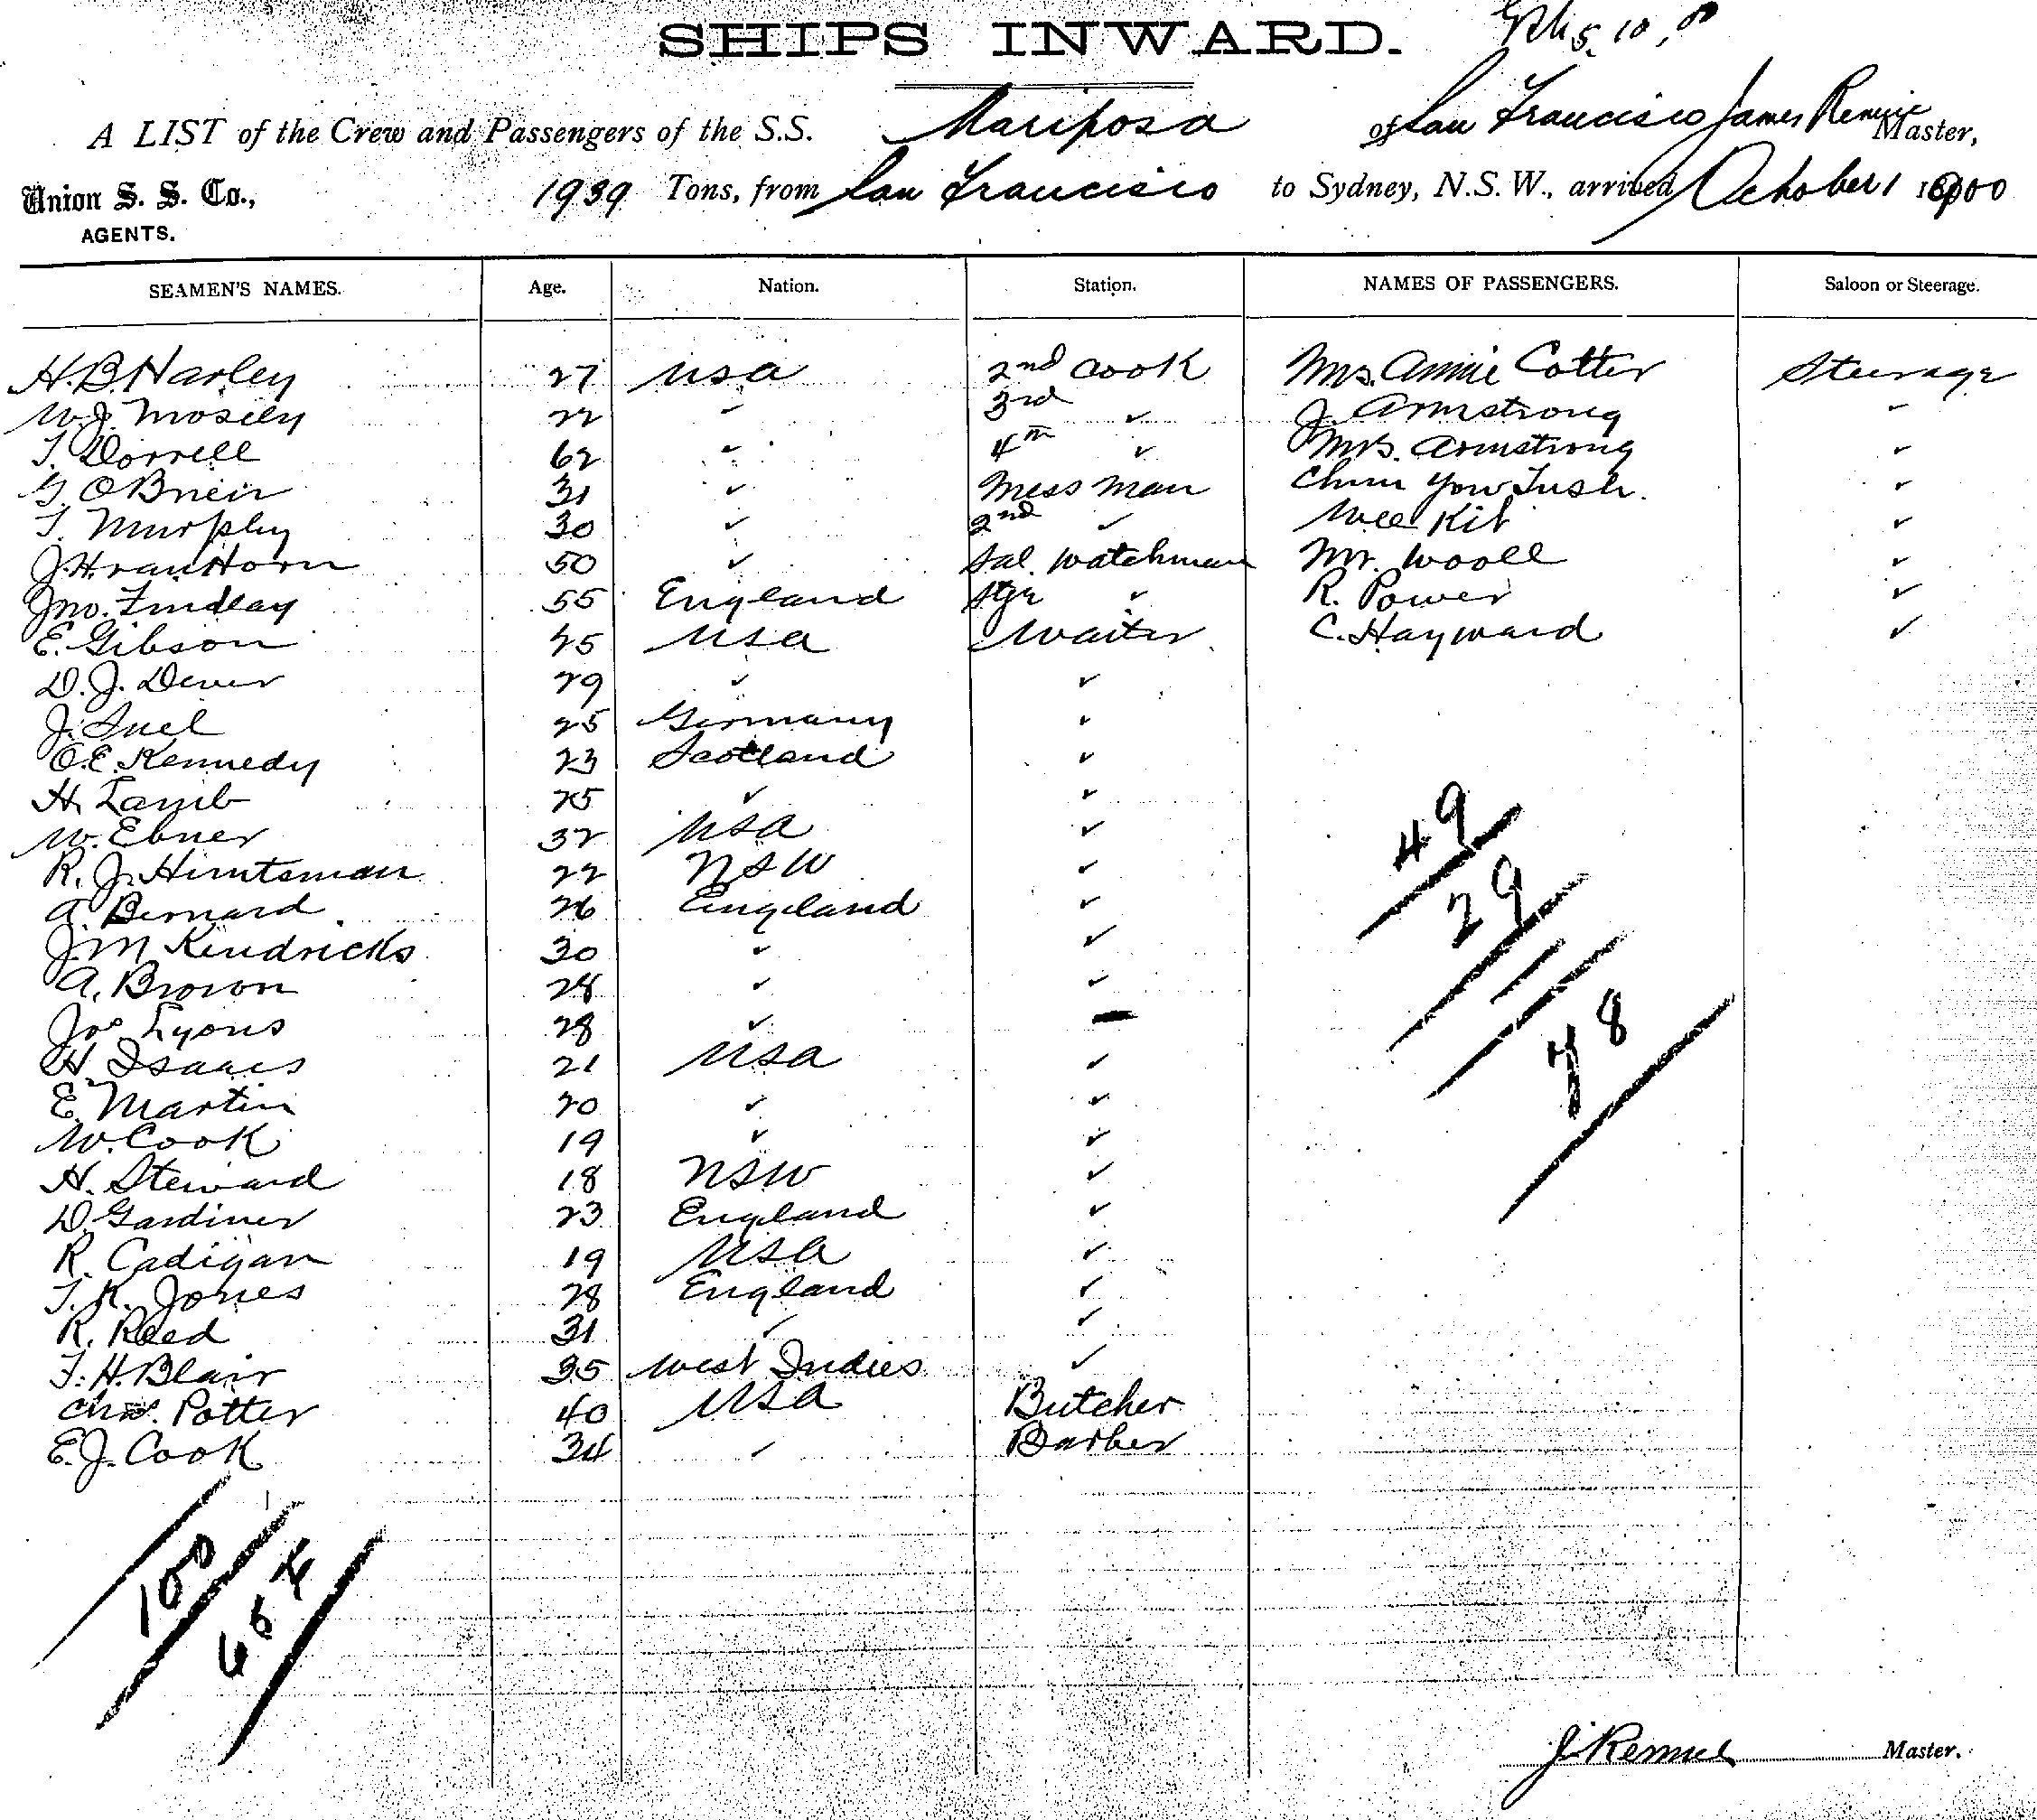 SHIPS INWARD.
5. 10. 00
A LIST of the Crew and Passengers of the S.S. Mariposa of San Francisco James Rennie Master,
Union S. S. Co., 1939 Tons, from San Francisco to Sydney, N.S.W., arrived October 1 1900
AGENTS.
SEAMEN'S NAMES. Age. Nation. Station. NAMES OF PASSENGERS. Saloon or Steerage.
H.B. Harley 27 USA 2nd Cook Mrs. Annie Cotter Steerage
W.J. Mosely 22 ✓ 3rd ✓ J. Armstrong ✓
T. Dorrell 62 ✓ 4th ✓ Mrs. Armstrong ✓
G. OBrien 31 ✓ Mess Man Chun Yow Tush. ✓
T. Murphy 30 ✓ 2nd ✓ Wee Kit ✓
J.H. van Horn 50 ✓ Sal. Watchman Mr. Wooll ✓
Jno. Findlay 55 England Stge ✓ R. Power ✓
E. Gibson 25 USA Waiter C. Hayward ✓
D.J. Dever 29 ✓ ✓
J. Suel 25 Germany ✓
O.E. Kennedy 23 Scotland ✓
H. Lamb 25 ✓ ✓
W. Ebner 32 USA ✓ 49
R.J. Huntsman 22 NSW ✓
A. Bernard 26 England ✓ 29
J.M Kendricks 30 ✓ ✓
A. Brown 28 ✓ ✓
Jos Lyons 28 ✓ 78
H. Isaacs 21 USA ✓
E. Martin 20 ✓ ✓
W. Cook 19 ✓ ✓
H. Steward 18 NSW ✓
D. Gardiner 23 England ✓
R. Cadigan 19 USA ✓
T.R. Jones 28 England ✓
R. Reed 31 ✓ ✓
F.H. Blair 35 West Indies ✓
Chas. Potter 40 USA Butcher
E.J. Cook 34 ✓ Barber
100
J. Rennie Master.